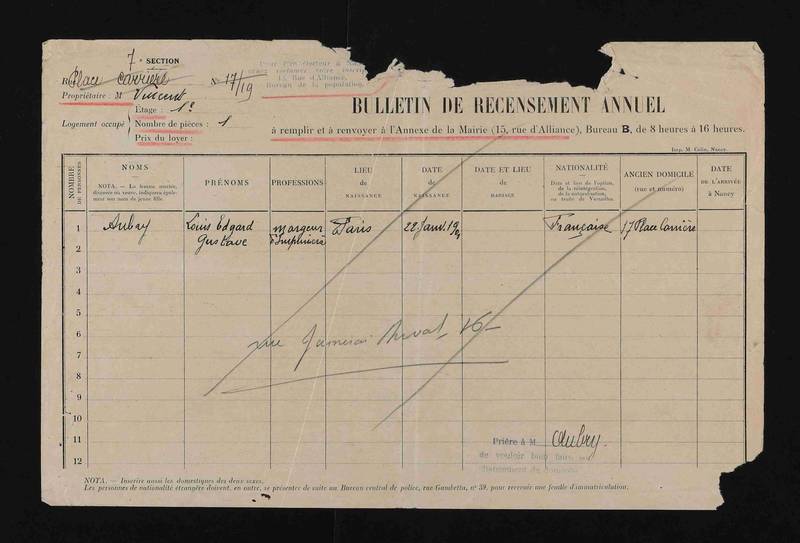 7e SECTION
Place Carrière N° 17/19
Propriétaire : M Vincent
Étage : 1e
Logement occupé Nombre de pièces : 1
Prix du loyer :
15, Rue d'Alliance,
Bureau de la population.
BULLETIN DE RECENSEMENT ANNUEL
à remplir et à renvoyer à l'Annexe de la Mairie (15, rue d'Alliance), Bureau B, de 8 heures à 16 heures.
Imp. M. Colin, Nancy.
NOMBRE DE PERSONNES
NOMS
NOTA. — La femme mariée, divorcée ou veuve, indiquera également son nom de jeune fille.
PRÉNOMS
PROFESSIONS
LIEU de NAISSANCE
DATE de NAISSANCE
DATE ET LIEU de MARIAGE
NATIONALITÉ
Date et lieu de l'option, de la réintégration, de la naturalisation, ou traité de Versailles.
ANCIEN DOMICILE (rue et numéro)
DATE DE L'ARRIVÉE à Nancy
1 Aubry Louis Edgard margeur Paris 22 Janv. 19 Française 17 Place Carrière
2 Gustave d'Imprimerie
3
4
5
6
rue 16
7
8
9
10
11
12
Prière à M Aubry.
de vouloir bien faire
NOTA. — Inscrire aussi les domestiques des deux sexes.
Les personnes de nationalité étrangère doivent, en outre, se présenter de suite au Bureau central de police, rue Gambetta, n° 39, pour recevoir une feuille d'immatriculation.